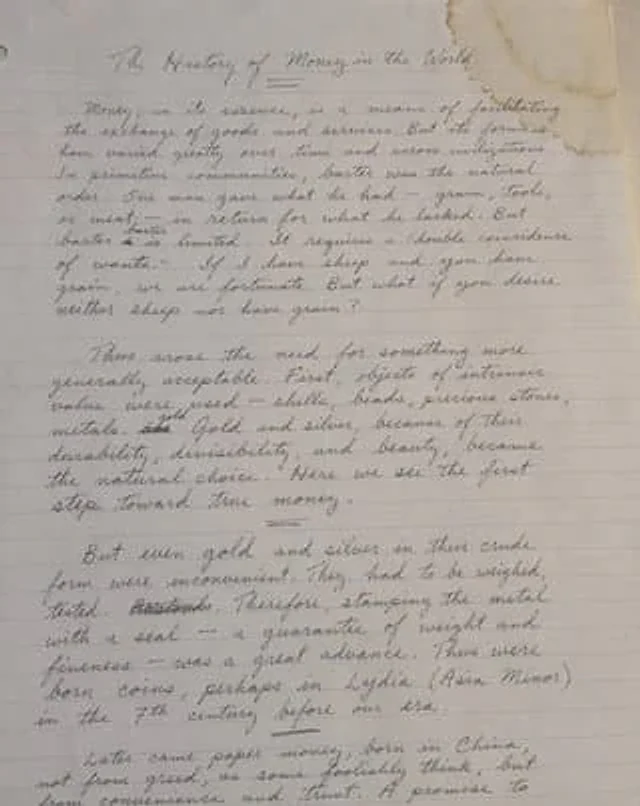 The History of Money in the World
Money, in its essence, is a means of facilitating
the exchange of goods and services. But its forms
have varied greatly over time and across civilizations
In primitive communities, barter was the natural
order. One man gave what he had — grain, tools,
or meat, — in return for what he lacked. But
barter
barter is limited. It requires a "double coincidence
of wants." If I have sheep and you have
grain, we are fortunate. But what if you desire
neither sheep nor have grain?
Thus arose the need for something more
generally acceptable. First, objects of intrinsic
value were used — shells, beads, precious stones,
gold
metals. Gold and silver, because of their
durability, divisibility, and beauty, became
the natural choice. Here we see the first
step toward true money.
But even gold and silver in their crude
form were inconvenient. They had to be weighed,
tested. Therefore, stamping the metal
with a seal — a guarantee of weight and
fineness — was a great advance. Thus were
born coins, perhaps in Lydia (Asia Minor)
in the 7th century before our era.
Later came paper money, born in China,
not from greed, as some foolishly think, but
from convenience and trust. A promise to